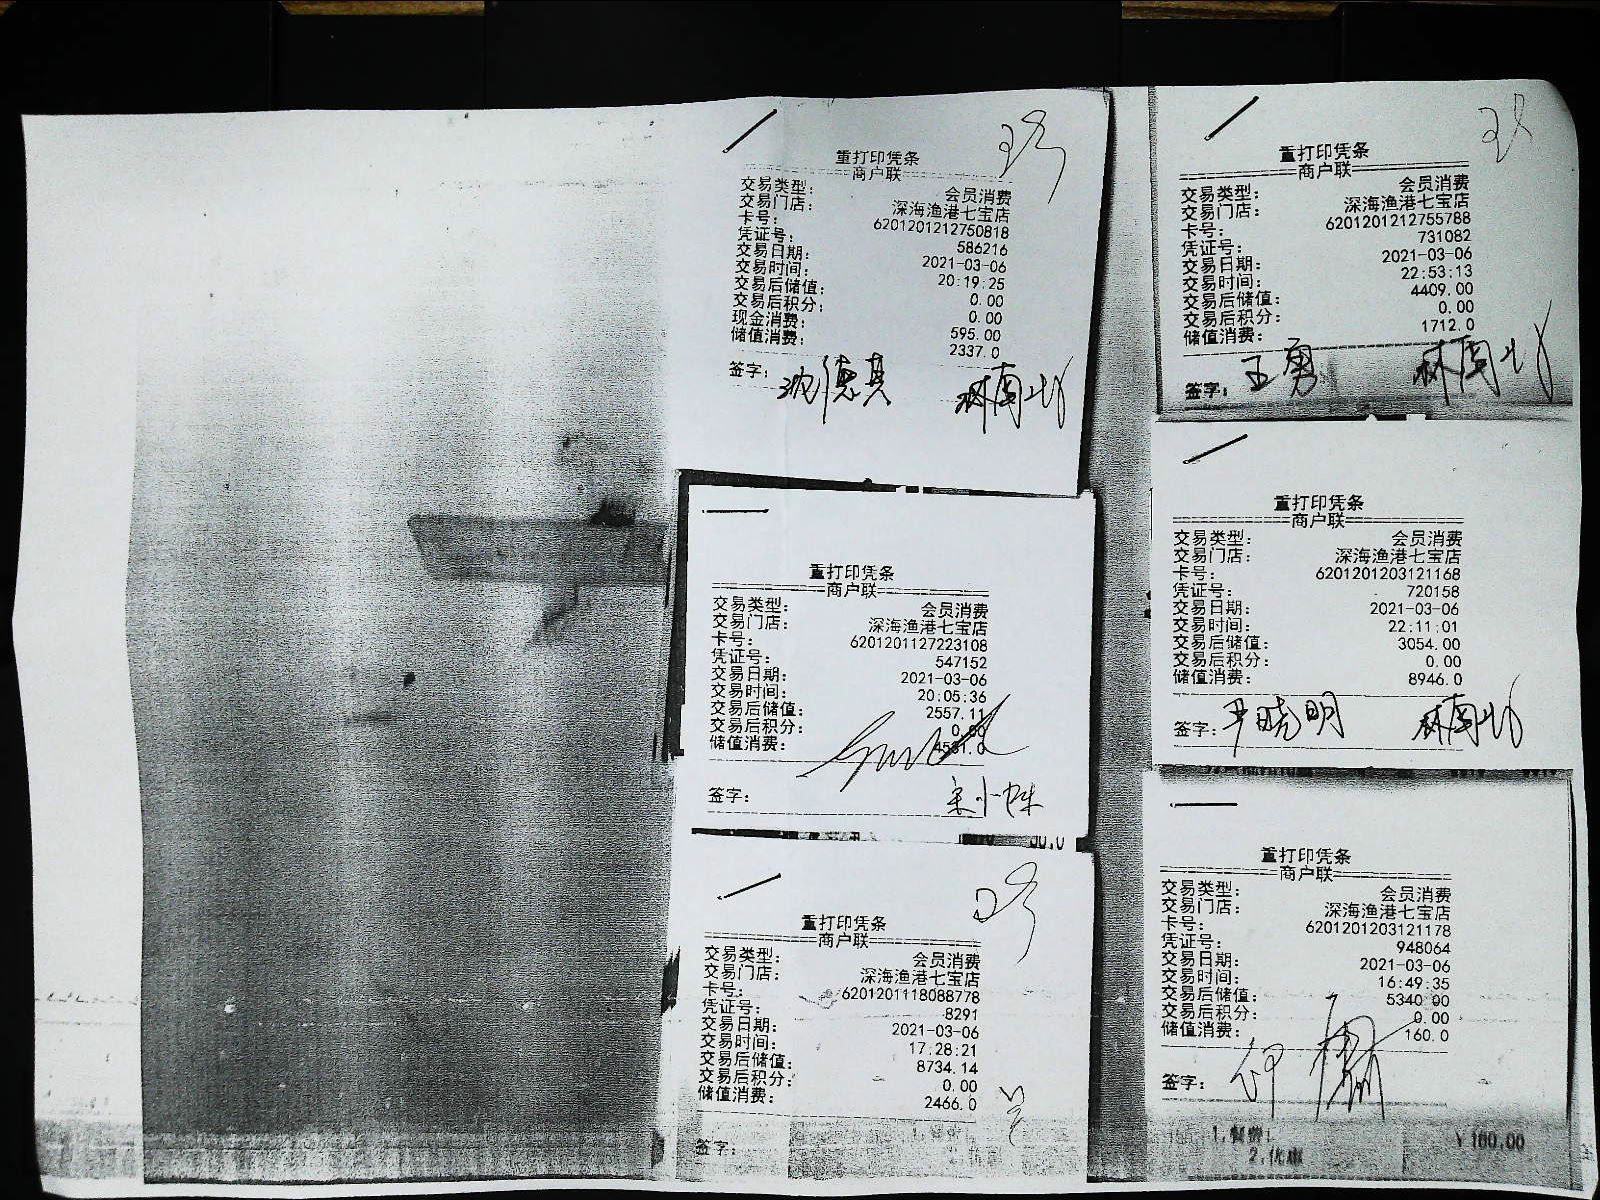 重打印凭条
商户联
交易类型： 会员消费
交易门店： 深海渔港七宝店
卡号： 6201201212750818
凭证号： 586216
交易日期： 2021-03-06
交易时间： 20:19:25
交易后储值： 0.00
交易后积分： 0.00
现金消费： 595.00
储值消费： 2337.0
签字： 沈德其 林南北
重打印凭条
商户联
交易类型： 会员消费
交易门店： 深海渔港七宝店
卡号： 6201201127223108
凭证号： 547152
交易日期： 2021-03-06
交易时间： 20:05:36
交易后储值： 2557.11
交易后积分： 0.00
储值消费： 4531.0
签字：
重打印凭条
商户联
交易类型： 会员消费
交易门店： 深海渔港七宝店
卡号： 6201201118088778
凭证号： 8291
交易日期： 2021-03-06
交易时间： 17:28:21
交易后储值： 8734.14
交易后积分： 0.00
储值消费： 2466.0
签字：
重打印凭条
商户联
交易类型： 会员消费
交易门店： 深海渔港七宝店
卡号： 6201201212755788
凭证号： 731082
交易日期： 2021-03-06
交易时间： 22:53:13
交易后储值： 4409.00
交易后积分： 0.00
储值消费： 1712.0
签字： 王勇 林南北
重打印凭条
商户联
交易类型： 会员消费
交易门店： 深海渔港七宝店
卡号： 6201201203121168
凭证号： 720158
交易日期： 2021-03-06
交易时间： 22:11:01
交易后储值： 3054.00
交易后积分： 0.00
储值消费： 8946.0
签字： 尹晓明 林南北
重打印凭条
商户联
交易类型： 会员消费
交易门店： 深海渔港七宝店
卡号： 6201201203121178
凭证号： 948064
交易日期： 2021-03-06
交易时间： 16:49:35
交易后储值： 5340.00
交易后积分： 0.00
储值消费： 160.0
签字：
1.餐费: ¥160.00
2.优惠